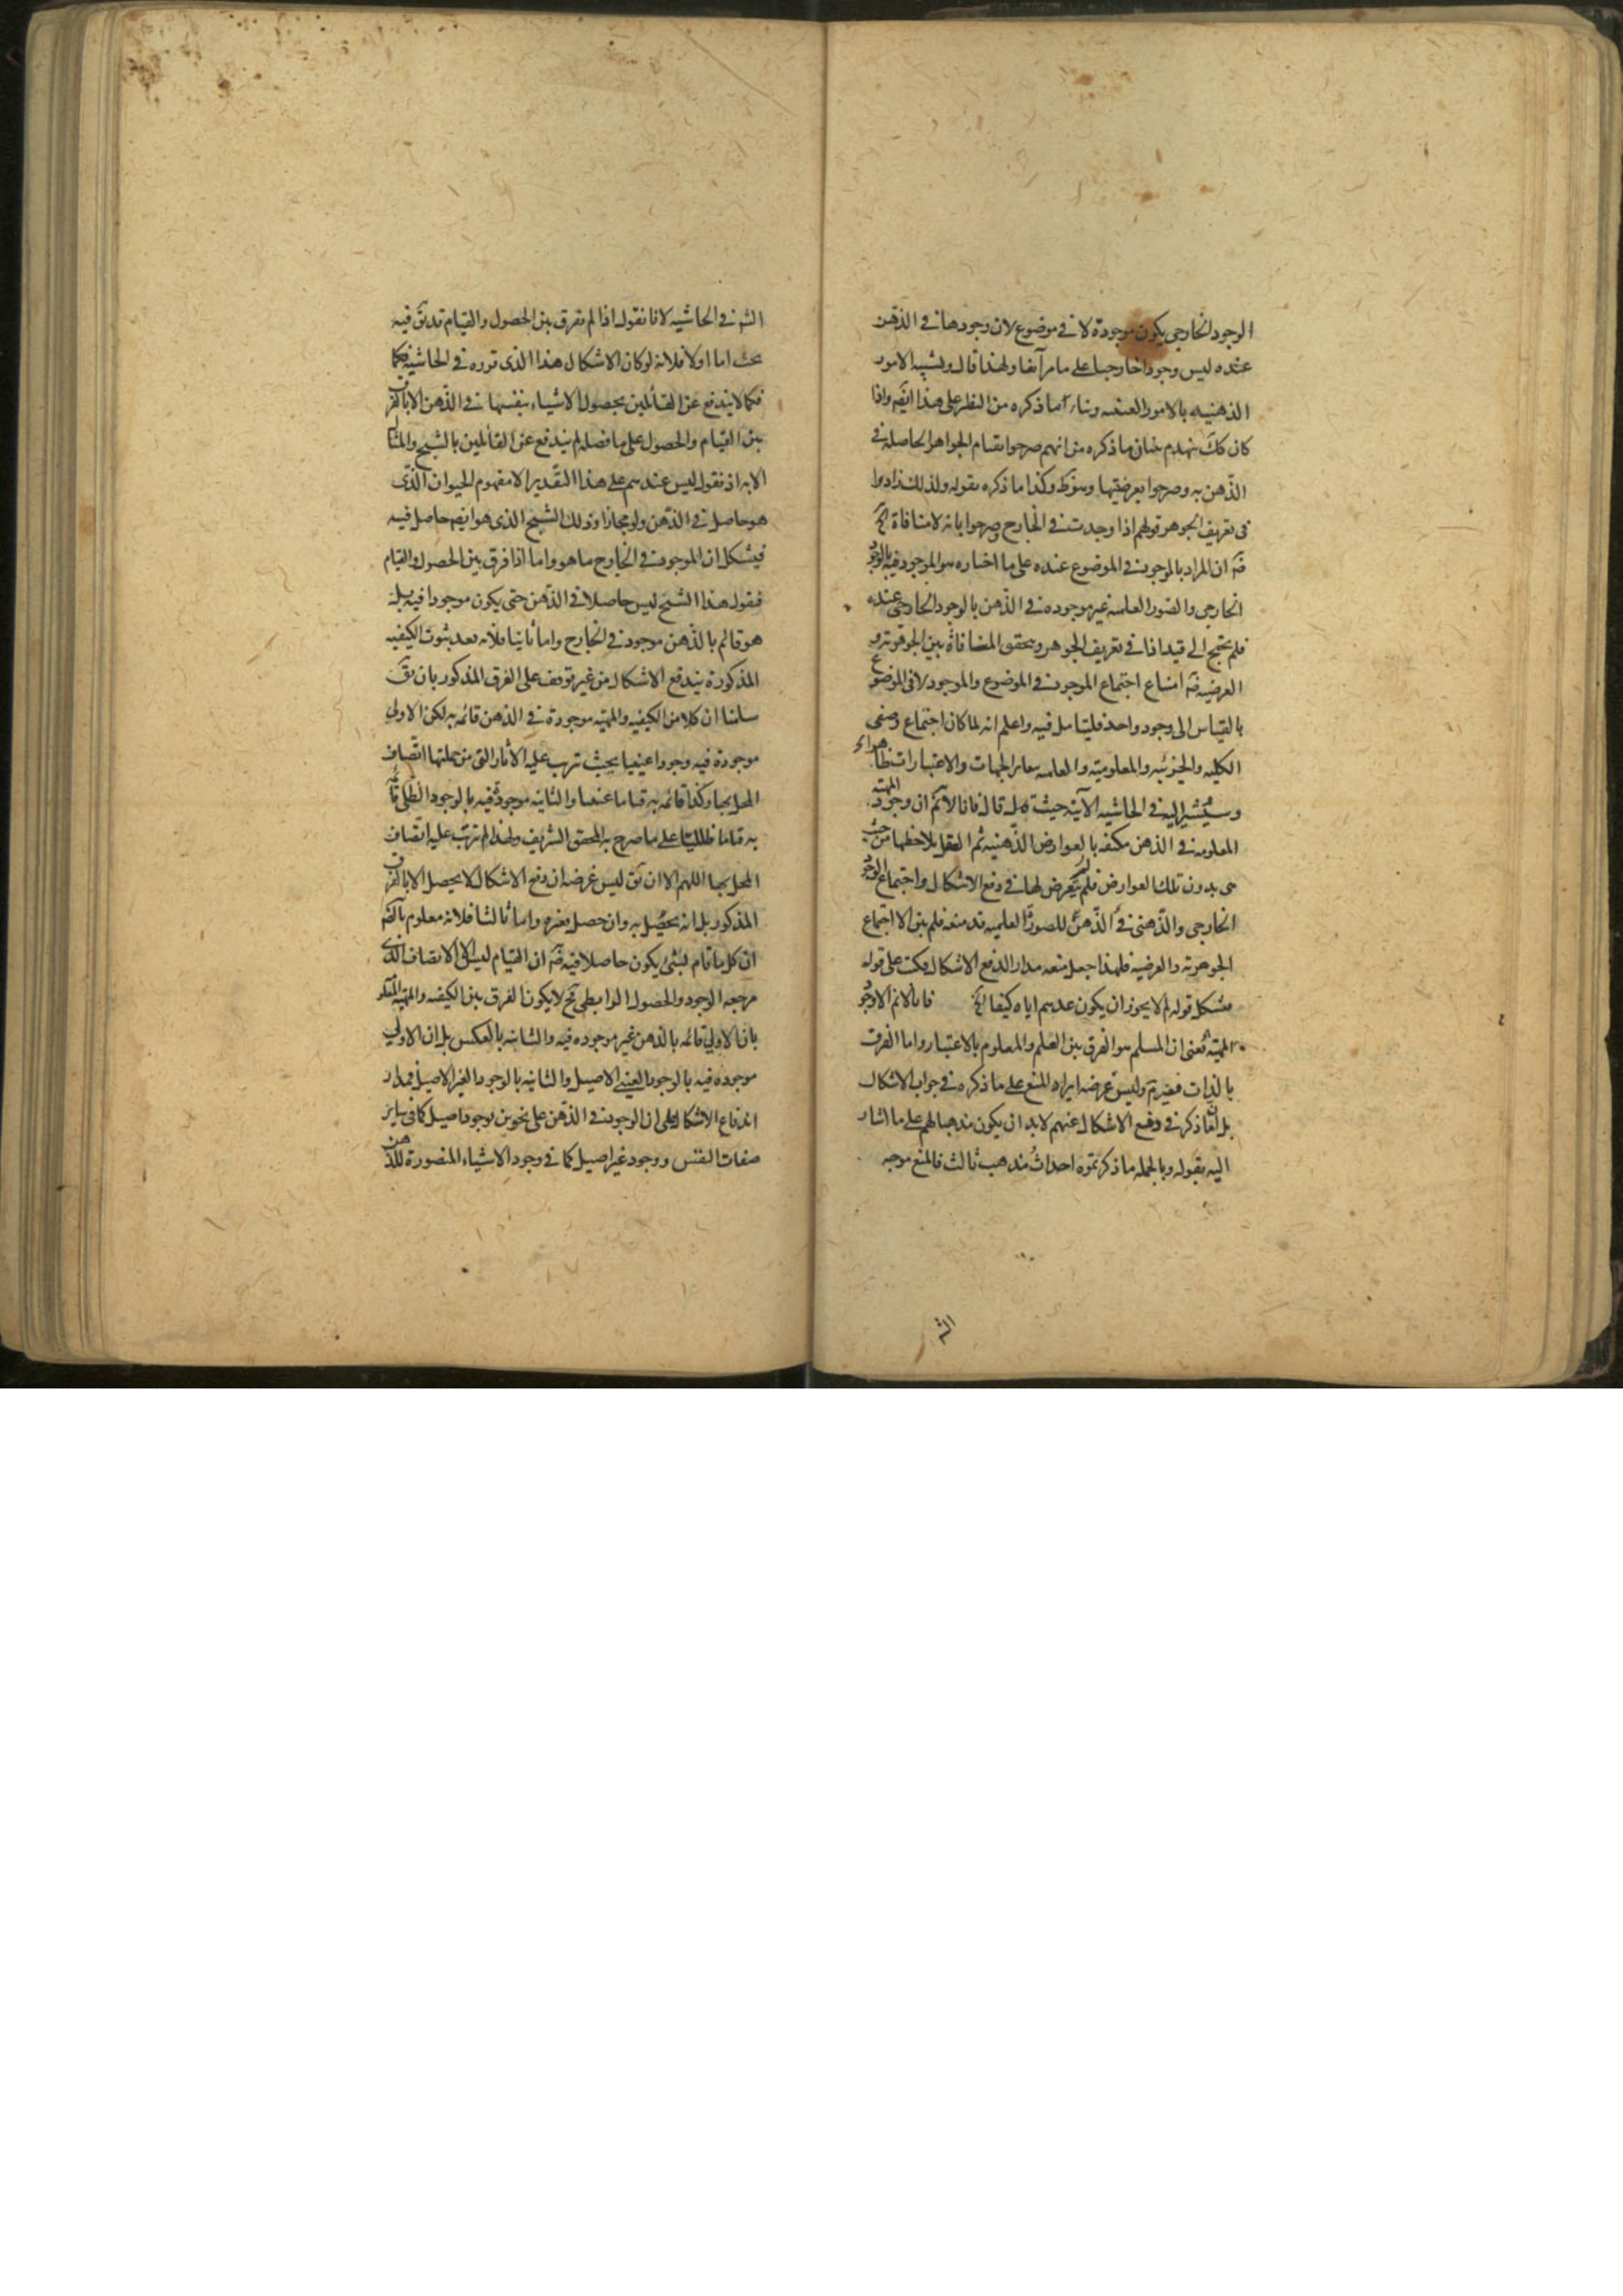 الوجود الخارجى يكون موجودة لا فى موضوع لان وجودها فى الذهن
عنده ليس وجودا خارجيا على ما مر آنفا ولهذا قال وتشبيه الامور
الذهنيه بالامور العينيه وبناء ما ذكره من النظر على هذا ايضا واذا
كان كك ينهدم بنيان ما ذكره من انهم صرحوا بقيام الجواهر الحاصله فى
الذهن به وصرحوا بعرضيتها وسقط وكذا ما ذكره بقوله ولذلك زادوا
فى تعريف الجوهر قولهم اذا وجدت فى الخارج وصرحوا بانه لا منافاة الخ
فيه ان المراد بالموجود فى الموضوع عنده على ما اختاره هو الموجود فيه بالوجود
الخارجى والصور العلميه غير موجوده فى الذهن بالوجود الخارجى عنده
فلم يحتج الى قيد اذا فى تعريف الجوهر وتحقق المنافاة بين الجوهريه و
العرضيه فيه امتناع اجتماع الموجود فى الموضوع والموجود لا فى الموضوع
بالقياس الى وجود واحد فليتامل فيه واعلم انه لما كان اجتماع وصفى
الكليه والجزئيه والمعلوميه والعلميه بتغاير الجهات والاعتبارات ظاهرا
وسيشير اليه فى الحاشيه الآتيه حيث قال فانا لا نم ان وجود المهيه
المعلومه فى الذهن مكتنفه بالعوارض الذهنيه ثم العقل يلاحظها من حيث
هى بدون تلك العوارض فلم يتعرض لها فى دفع الاشكال واجتماع الوجود
الخارجى والذهنى فى الذهن للصورة العلميه قد منعه فلم يبق الا اجتماع
الجوهريه والعرضيه فلهذا جعل منعه مدار الدفع الاشكال فكتب على قوله
مشكل قوله لم لا يجوز ان يكون عدهم اياه كيفا الخ فانا لا نم الا وجود
المهيه يعنى ان المسلم هو الفرق بين العلم والمعلوم بالاعتبار واما الفرق
بالذات فغير تم وليس غرضه ايراد المنع على ما ذكره فى جواب الاشكال
بل لما ذكر فى دفع الاشكال عنهم لابد ان يكون مذهبا لهم على ما اشار
اليه بقوله وبالجمله ما ذكرتموه احداث مذهب ثالث فالمنع موجه
الشه
الشه فى الحاشيه لانا نقول اذا لم يفرق بين الحصول والقيام قد يق فيه
بحث اما اولا فلانه لو كان الاشكال هذا الذى قرره فى الحاشيه فكما
فكما لا يندفع عن القائلين بحصول الاشياء بنفسها فى الذهن الا بالفرق
بين القيام والحصول على ما فصله لم يندفع عن القائلين بالشبح والمثال
الا به اذ نقول ليس عندهم على هذا التقدير الا مفهوم الحيوان الذى
هو حاصل فى الذهن ولو مجازا وذلك الشبح الذى هو ايضا حاصل فيه
فيشكل ان الموجود فى الخارج ما هو واما اذا فرق بين الحصول والقيام
فنقول هذا الشبح ليس حاصلا فى الذهن حتى يكون موجودا فيه بل
هو قائم بالذهن موجود فى الخارج واما ثانيا فلانه بعد ثبوت الكيفيه
المذكورة يندفع الاشكال من غير توقف على الفرق المذكور بان يق
سلمنا ان كلا من الكيفيه والمهيه موجودة فى الذهن قائمه به لكن الاولى
موجودة فيه وجودا عينيا بحيث ترتب عليه الآثار التى من جملتها اتصاف
المحل بها وكذا قائمه به قياما عينيا والثانيه موجودة فيه بالوجود الظلى قائمه
به قياما ظليا على ما صرح به المحقق الشريف ولهذا لم ترتب عليه اتصاف
المحل بها اللهم الا ان يق ليس غرضه ان دفع الاشكال لا يحصل الا بالفرق
المذكور بل انه يحصل به وان حصل بغيره واما ثالثا فلانه معلوم بالضم
ان كل ما قام لشئ يكون حاصلا فيه فيه ان القيام ليس الا الاتصاف الذى
مرجعه الوجود والحصول الرابطى فح لا يكون الفرق بين الكيفيه والمهيه
بان الاولى قائمه بالذهن غير موجوده فيه والثانيه بالعكس بل ان الاولى
موجوده فيه بالوجود العينى الاصيل والثانيه بالوجود الغير الاصيل فمدار
اندفاع الاشكال على ان الوجود فى الذهن على نحوين بوجود اصيل كما فى ساير
صفات النفس ووجود غير اصيل كما فى وجود الاشياء المتصورة للذهن